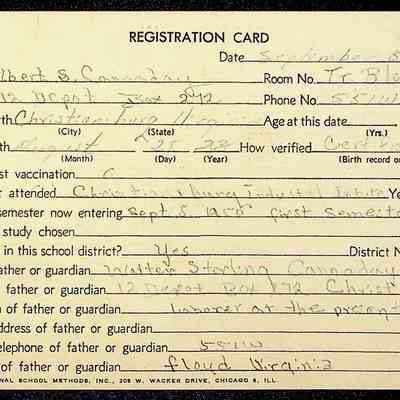 REGISTRATION CARD
Date September 5
lbert S. Cannaday Room No. Tr. Ble
12 Depot Box 272 Phone No. 551W
rth Christiansburg Virginia Age at this date
(City) (State) (Yrs.)
th August 25 How verified
(Month) (Day) (Year) (Birth record o
st vaccination
r attended Christiansburg Industrial Institute Ye
semester now entering Sept. 5, 1950 first Semeste
f study chosen
in this school district? Yes District N
ather or guardian Walter Sterling Cannaday
father or guardian 12 Depot Box 272 Christ
n of father or guardian laborer at the present
ddress of father or guardian
elephone of father or guardian 551W
of father or guardian Floyd Virginia
NAL SCHOOL METHODS, INC., 208 W. WACKER DRIVE, CHICAGO 6, ILL.